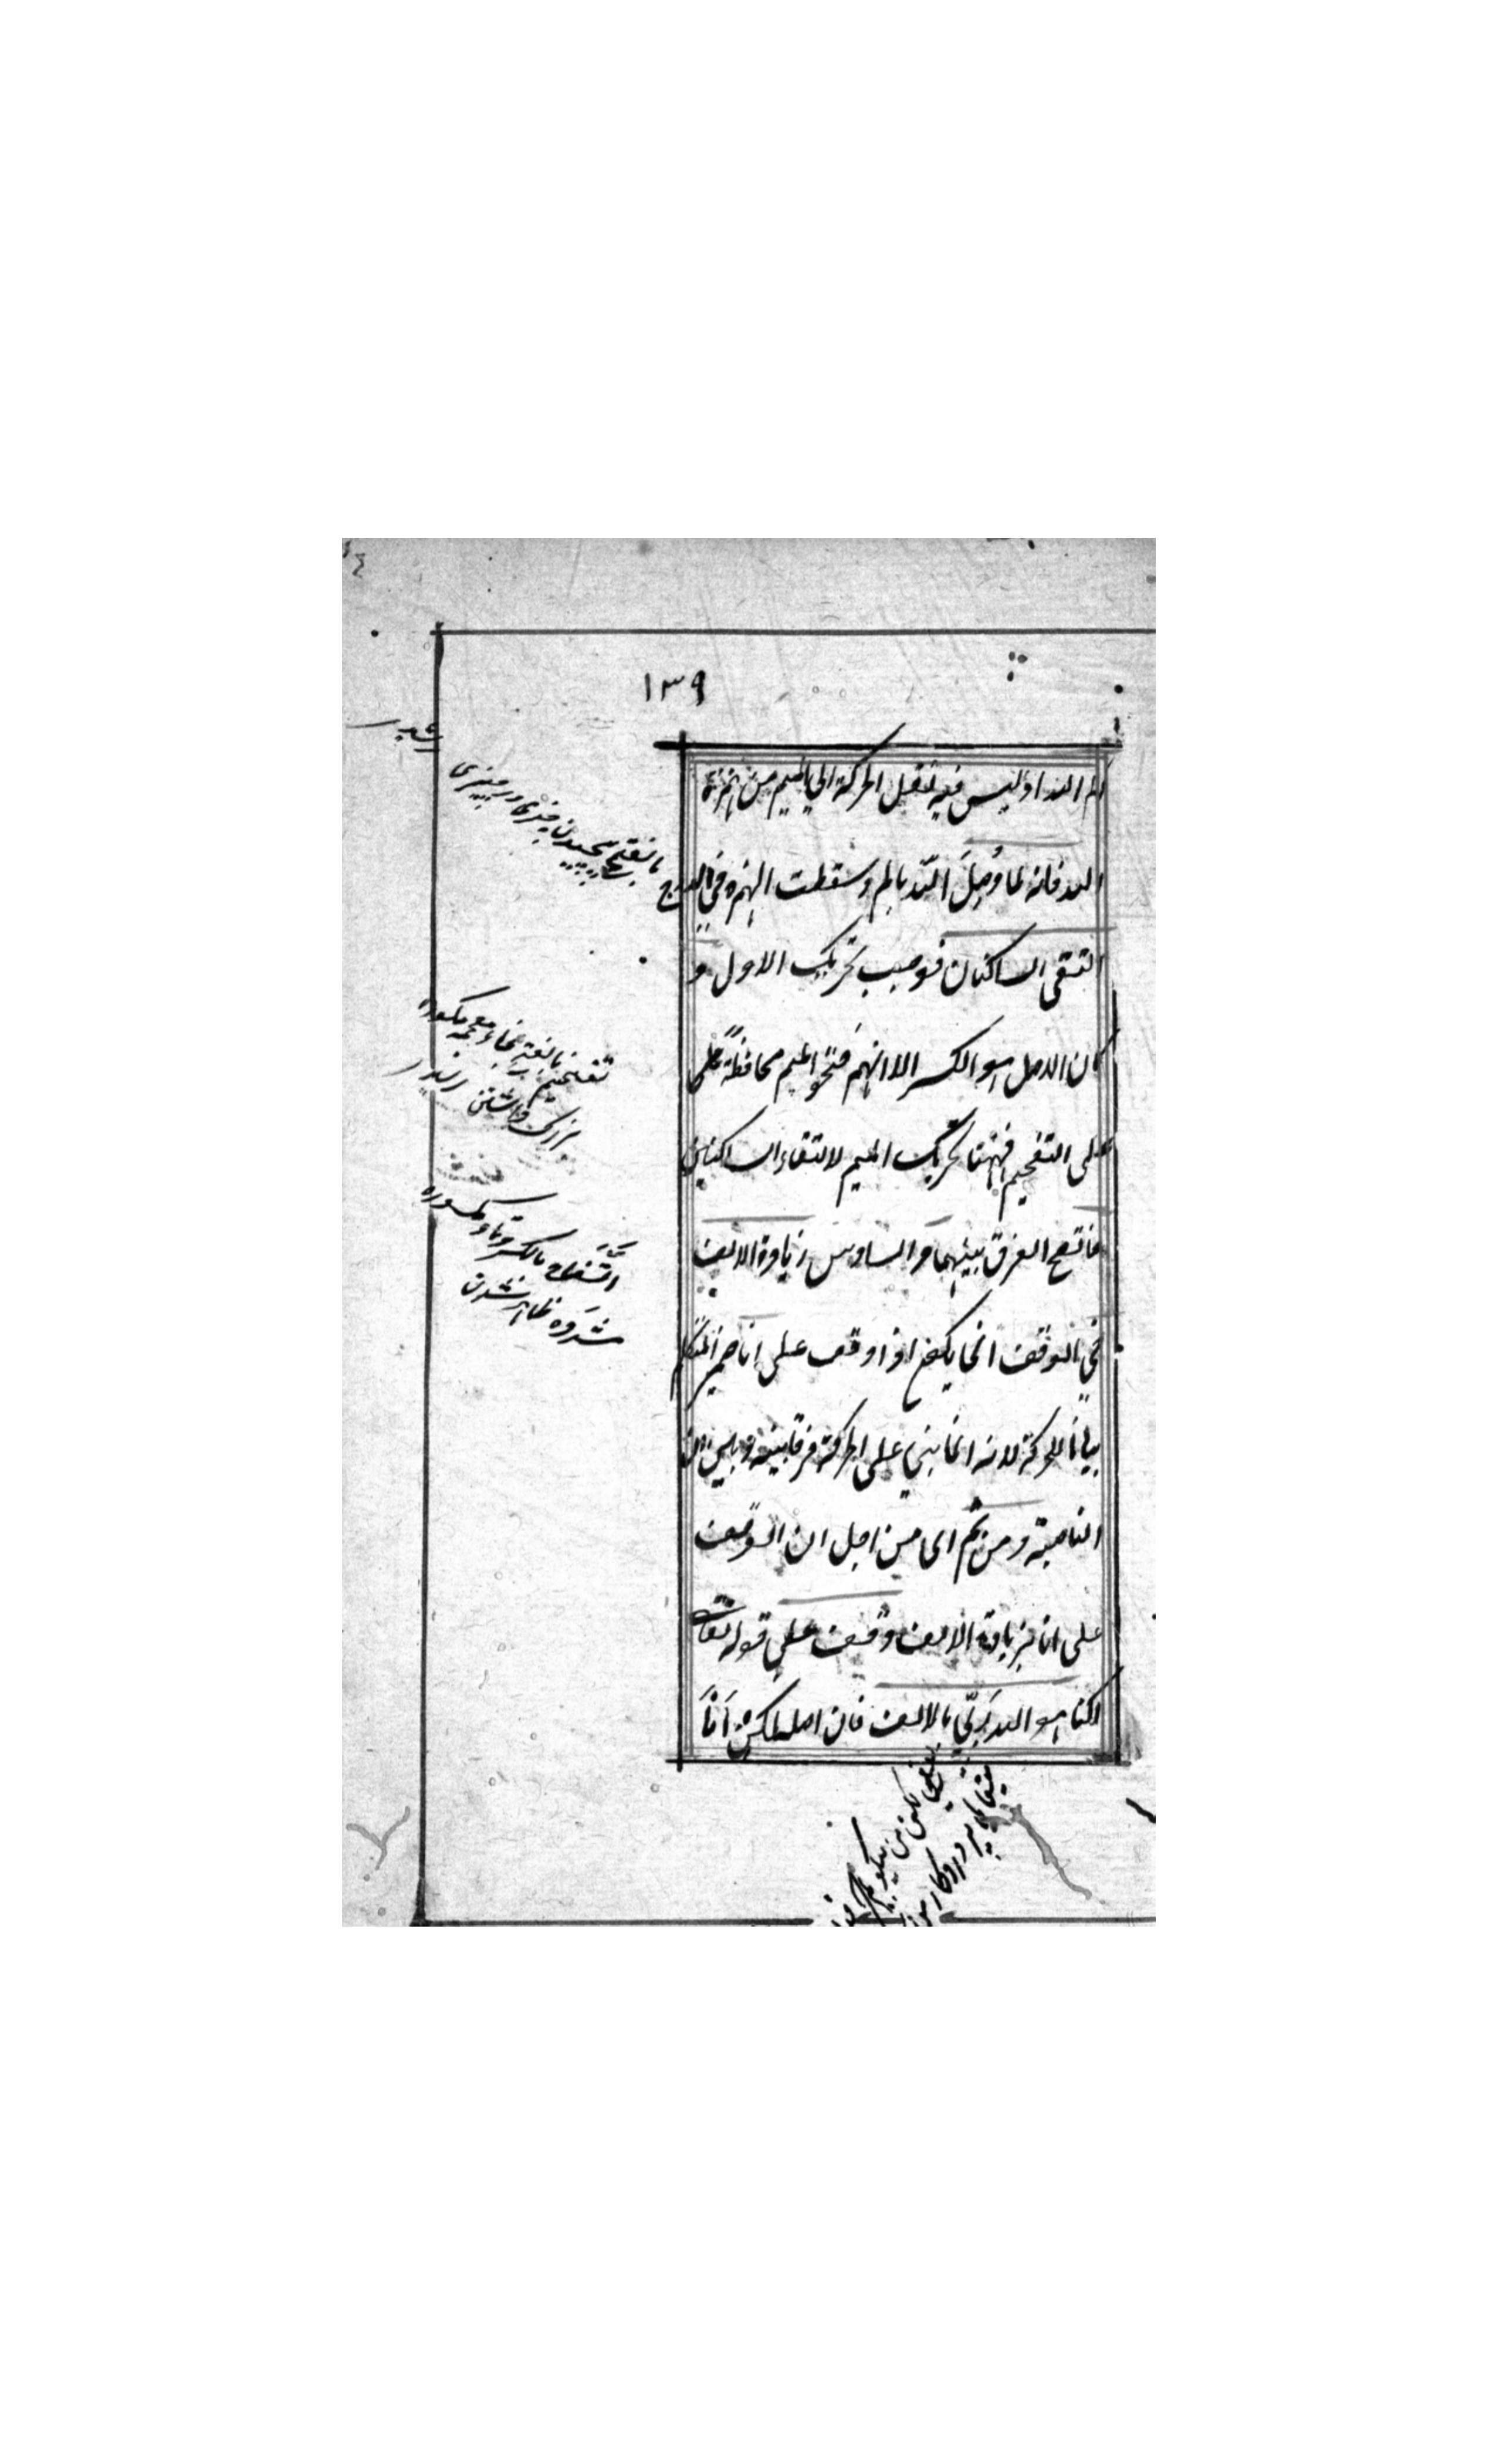 ١٣٩
الم الله اذ ليس فيه نقل الحركة الى الميم من همزة
الله فانه لما وُصِلَ الله بالم وسقطت الهمزه في الدرج
التقى الساكنان فوجب تحريك الاول و
كان الاصل هو الكسر الا انهم فتحوا الميم محافظةً على
على التفخيم فههنا تحريك الميم لالتقاء الساكنين
فاتضح الفرق بينهما والسادس زيادة الالف
في الوقف انما يكون اذا وقف على انا ضمير المتكلم
بيانا للحركة لانه انما بني على الحركة فرقا بينه وبين ان
الناصبة ومن ثم اى من اجل ان الوقف
على انا بزيادة الالف وقف على قوله تعالى
لكنا هو الله رَبّي بالالف فان اصله لكن اَنَا
بالفتح پیچیدن چیزی در چیزی
تفخیم بالفتح
بزرگ داشتن
اتضاح بالکسر وتاء مکسوره
ظاهر شدن